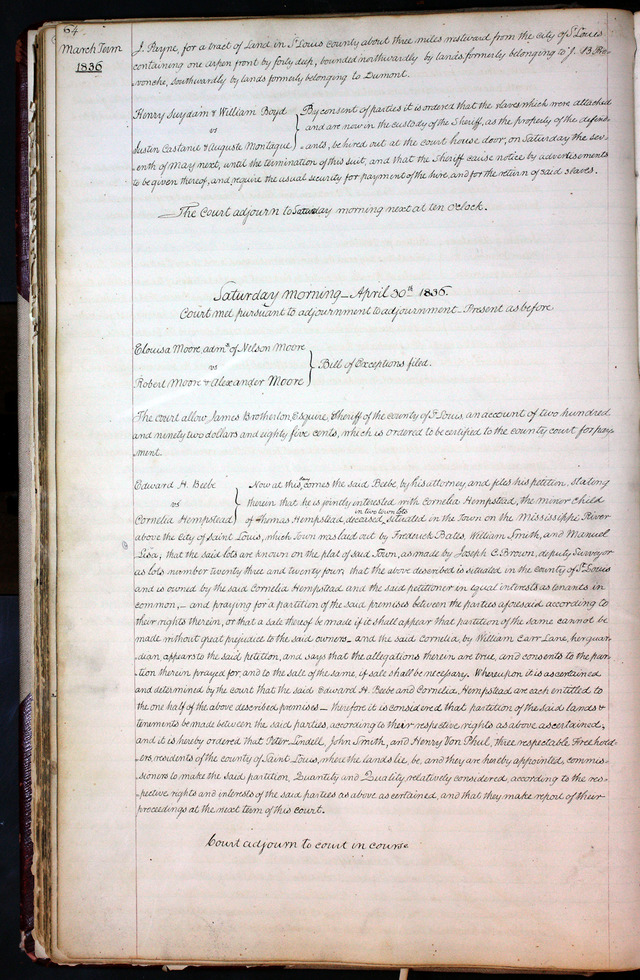 64
March Term
1836
J. Payne, for a tract of Land in St Louis county about three miles westward from the city of St Louis
containing one arpen front by forty deep, bounded northwardly by lands formerly belonging to J. B. Pro-
-vonche, Southwardly by lands formerly belonging to Dumont.
Henry Suydam & William Boyd
vs
Austin Castanu & Auguste Montique
By consent of parties it is ordered that the slaves which were attached
and are now in the custody of the Sheriff, as the property of the defend-
-ants, be hired out at the court house door, on Saturday the sev-
-enth of May next, until the termination of this suit, and that the Sheriff cause notice by advertisements
to be given thereof, and require the usual security for payment of the hire, and for the return of said slaves.
The Court adjourn to Saturday morning next at ten o'clock.
Saturday morning – April 30th 1836.
Court met pursuant to adjournment to adjournment – Present as before
Elouisa Moore, admx of Nelson Moore
vs
Robert Moore & Alexander Moore
Bill of Exceptions filed.
The court allow James Brotherton, Esquire, Sheriff of the county of St Louis, an account of two hundred
and ninety two dollars and eighty five cents, which is ordered to be certified to the county court for pay-
-ment.
Edward H. Beebe
vs
Cornelia Hempstead
Now at this day comes the said Beebe, by his attorney and files his petition, stating
therein that he is jointly interested with Cornelia Hempstead, the minor child
of Thomas Hempstead, deceased, in two town lots situated in the Town on the Mississippi River
above the City of Saint Louis, which Town was laid out by Frederick Bates, William Smith, and Manuel
Lisa; that the said lots are known on the plat of said Town, as made by Joseph C. Brown, deputy Surveyor
as lots number twenty three and twenty four; that the above described is situated in the County of St Louis
and is owned by the said Cornelia Hempstead and the said petitioner in equal interests as tenants in
common, – and praying for a partition of the said premises between the parties aforesaid according to
their rights therein, or that a sale thereof be made if it shall appear that partition of the same cannot be
made without great prejudice to the said owners – and the said Cornelia, by William Carr Lane, her guar-
-dian, appears to the said petition, and says that the allegations therein are true, and consents to the par-
-tion therein prayed for, and to the sale of the same, if sale shall be necessary. Whereupon it is ascertained
and determined by the court that the said Edward H. Beebe and Cornelia Hempstead are each entitled to
the one half of the above described premises – therefore it is considered that partition of the said lands &
tenements be made between the said parties, according to their respective rights as above ascertained;
and it is hereby ordered that Peter Lindell, John Smith, and Henry Von Phul, three respectable Freehold-
-ers, residents of the county of Saint Louis, where the lands lie, be, and they are hereby appointed, commis-
-sioners to make the said partition, Quantity and Quality relatively considered, according to the res-
-pective rights and interests of the said parties as above ascertained, and that they make report of their
proceedings at the next term of this court.
Court adjourn to court in course